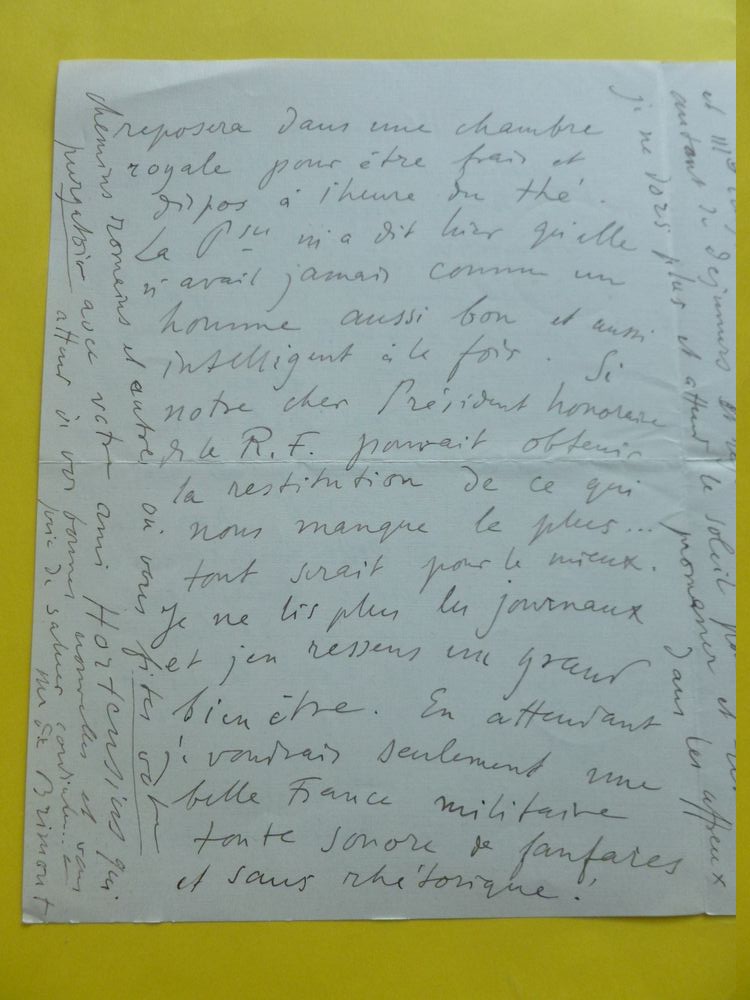 reposera dans une chambre
royale pour être frais et
dispos à l'heure du thé.
La Psse m'a dit hier qu'elle
n'avait jamais connu un
homme aussi bon et aussi
intelligent à la fois. Si
notre cher Président honoraire
de la R.F. pouvait obtenir
la restitution de ce qui
nous manque le plus...
tout serait pour le mieux.
Je ne lis plus les journaux
et j'en ressens un grand
bien être. En attendant
je voudrais seulement une
belle France militaire
toute sonore de fanfares
et sans rhétorique!
et III
autant de déjeuners
je ne dors plus et attend le soleil
promener et
dans les affreux
chemins romains et autres où vous fites votre
purgatoire avec votre ami Hortensius qui
attend de vos bonnes nouvelles et vous
prie de saluer cordialement
Mr de Brimont